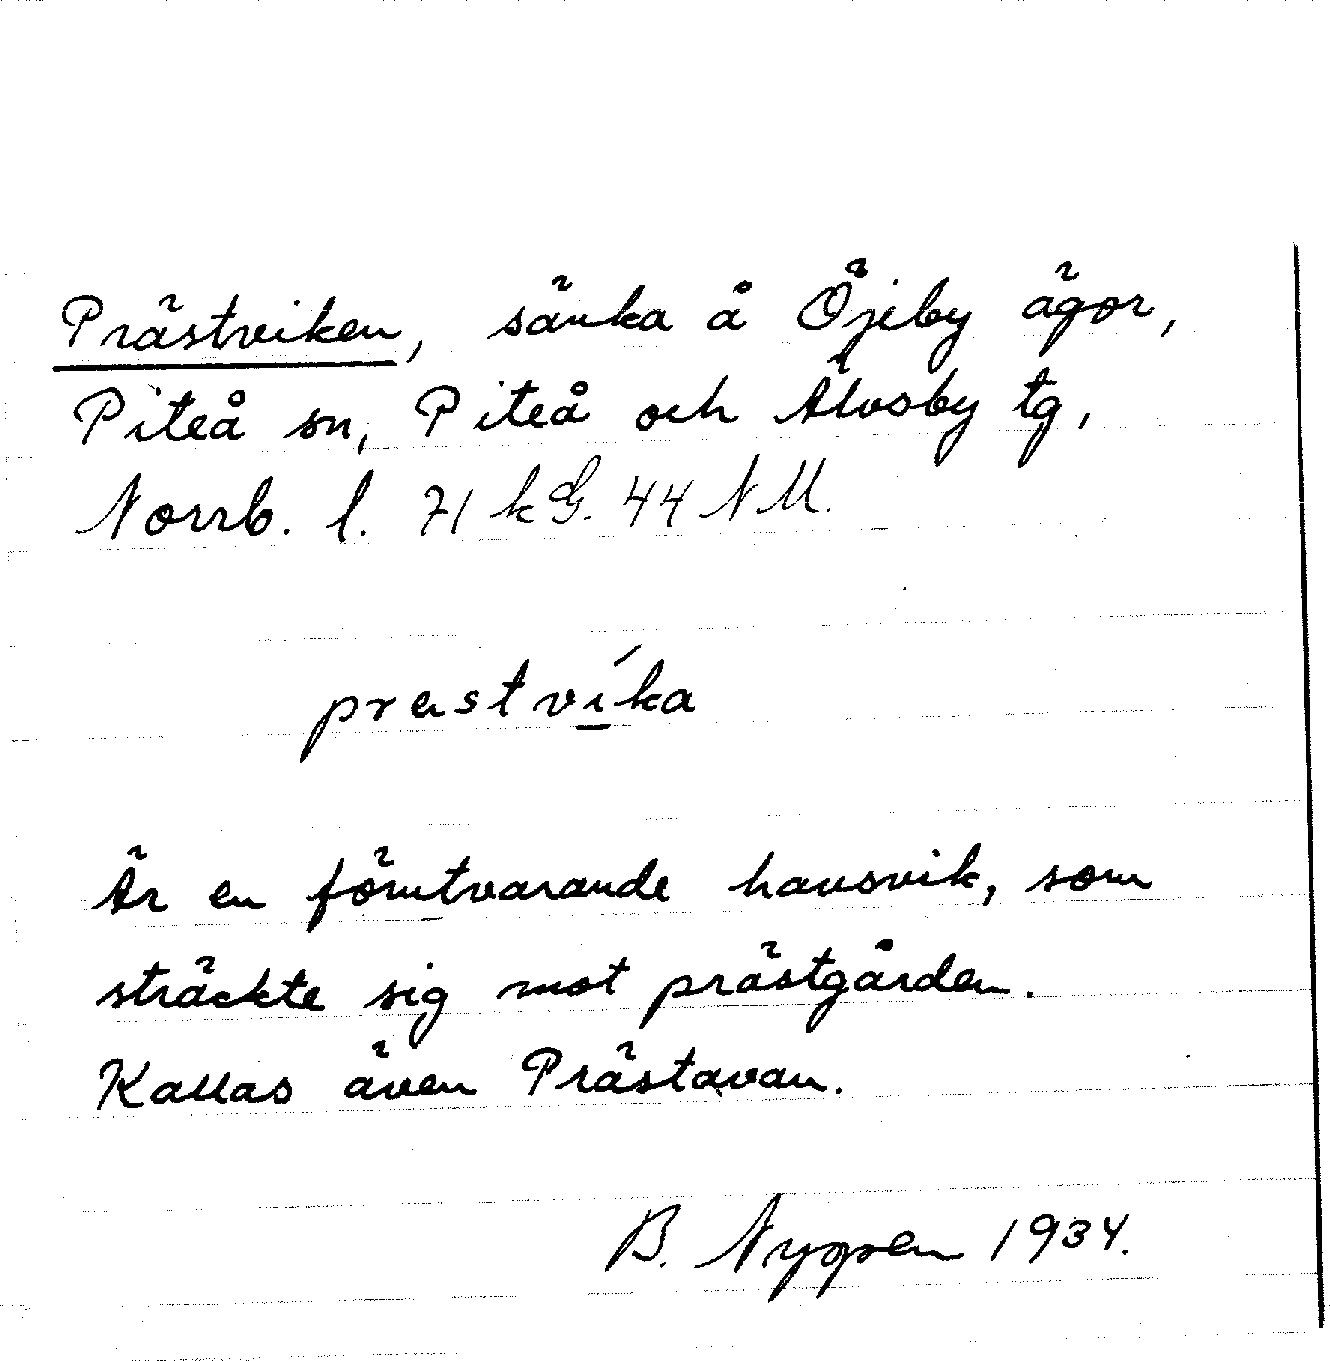 Prästviken, sänka å Öjeby ägor,
Piteå sn, Piteå och Älvsby tg,
Norrb. l. 71 kG. 44 NM.
prestvika
Är en förutvarande havsvik, som
sträckte sig mot prästgården.
Kallas även Prästavan.
B. Nyqven 1934.